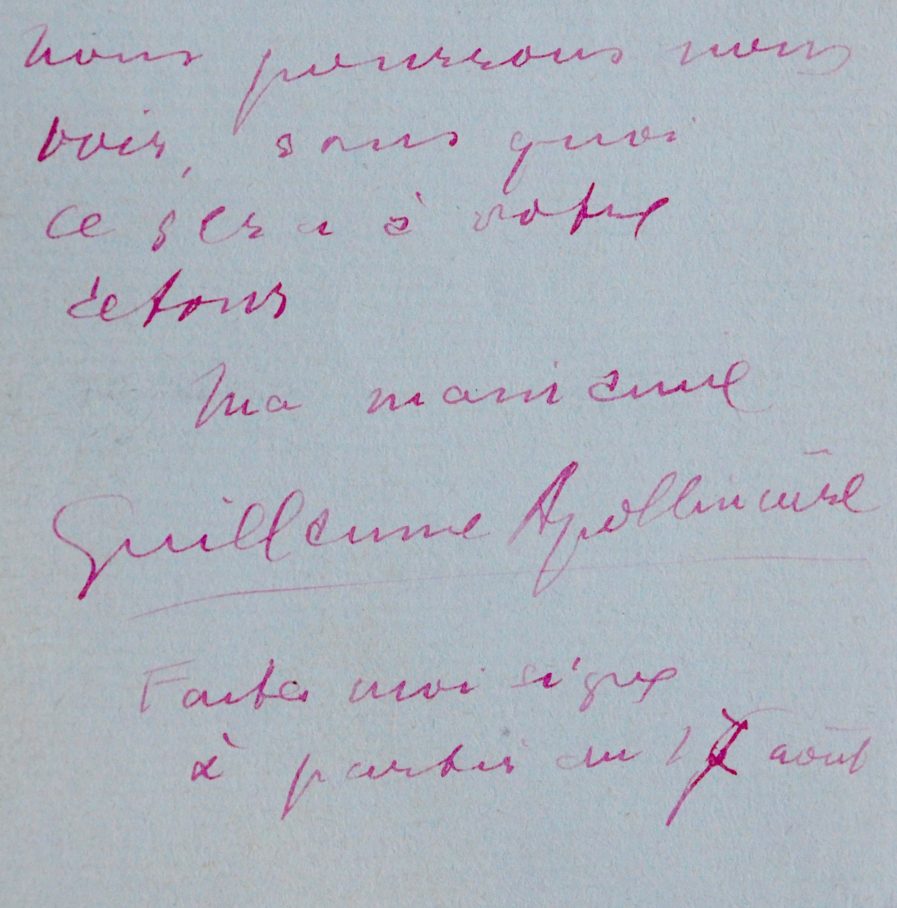 nous pourrons nous
voir, sans quoi
ce sera à votre
retour
Ma main amie
Guillaume Apollinaire
Faites moi signe
à partir du 17 août